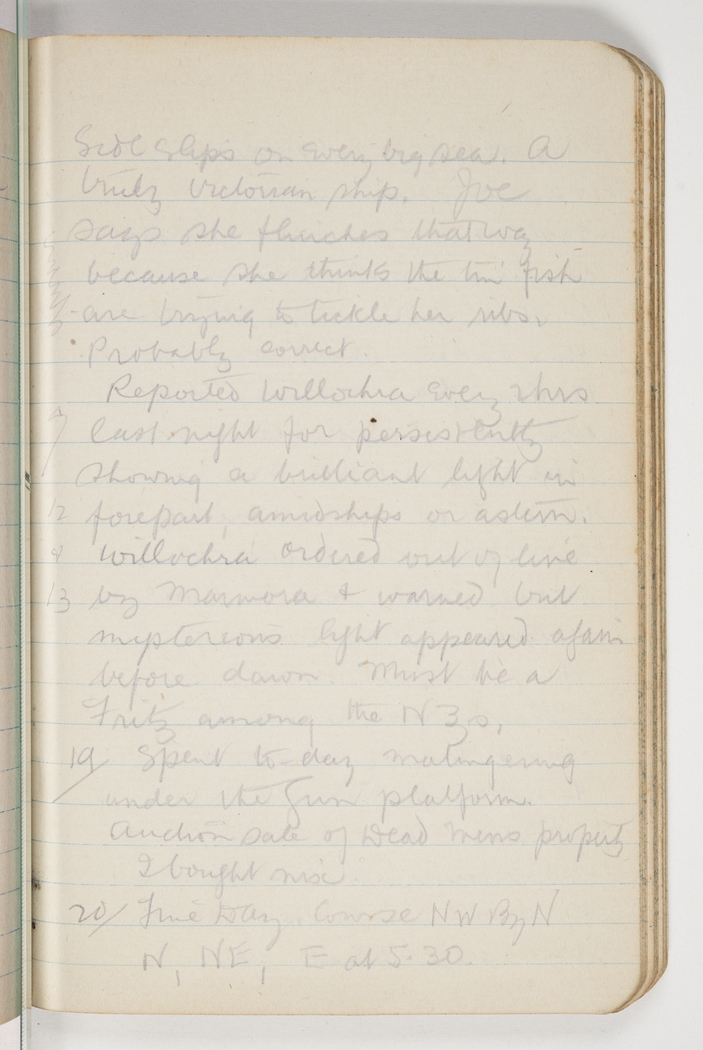 Side slips on every big sea. A
truly Victorian ship. Joe
says she flinches that way
because she thinks the tin fish
are trying to tickle her ribs.
Probably correct.
Reported Willochra every 2 hrs
last night for persistently
showing a brilliant light in
forepart, amidships or astern.
Willochra ordered out of line
by Marmora & warned but
mysterious light appeared again
before dawn. Must be a
Fritz among the N Zs.
19/ Spent to-day malingering
under the Gun platform.
Auction sale of Dead mens property
I bought nix.
20/ Fine Day. Course NW By N
N, NE, E at 5.30.